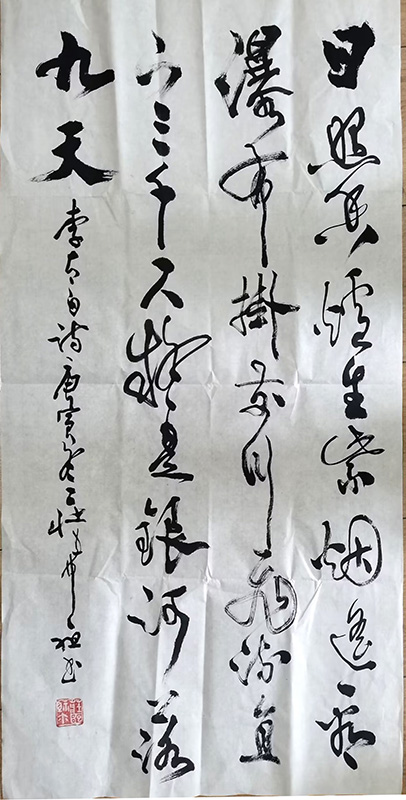 日照香爐生紫烟遙看
瀑布掛前川飛流直
下三千尺疑是銀河落
九天
李太白詩庚寅